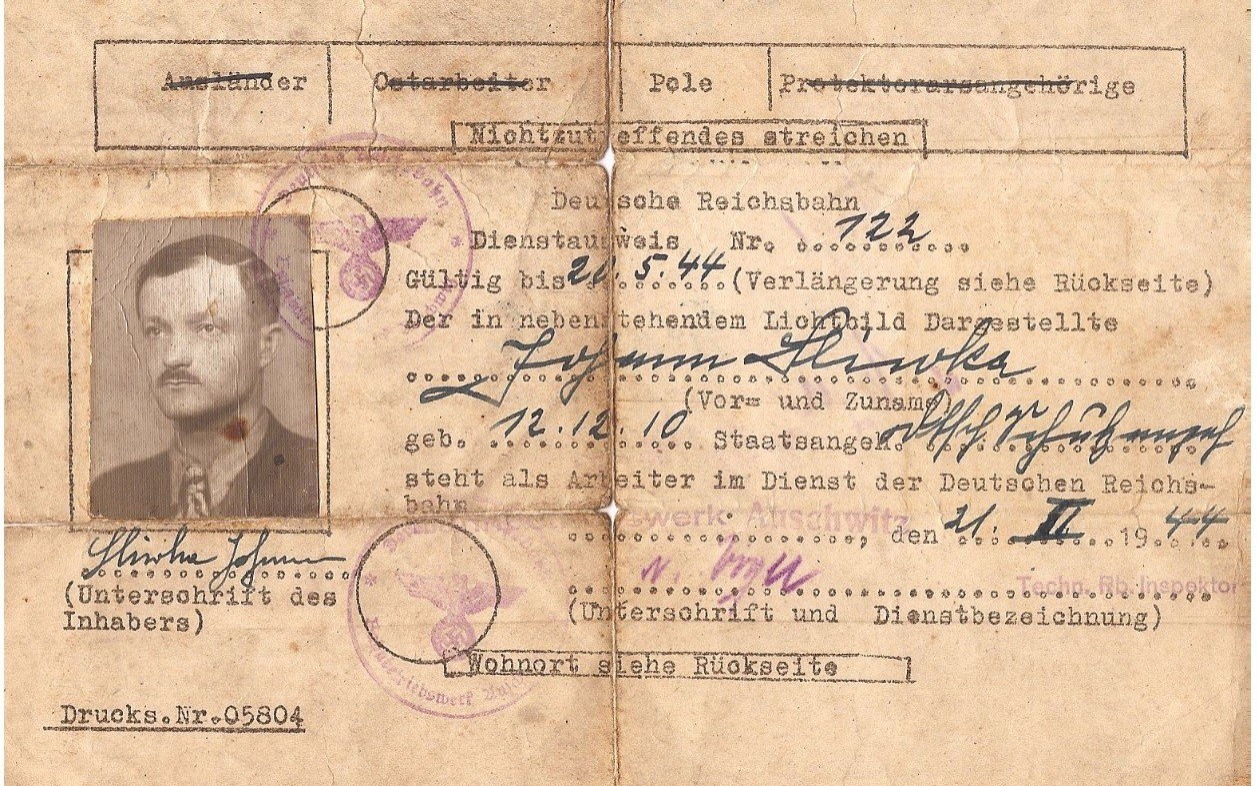 Ausländer Ostarbeiter Pole Protektorarsangehörige
Nichtzutreffendes streichen
Deutsche Reichsbahn
Dienstausweis Nr. 122
Gültig bis 20.5.44 (Verlängerung siehe Rückseite)
Der in nebenstehendem Lichtbild Dargestellte
Johann Sliwka
(Vor= und Zuname)
geb. 12.12.10 Staatsangeh. dtsch Schutzangeh
steht als Arbeiter im Dienst der Deutschen Reichs-
bahn
swerk Auschwitz, den 21. II 1944
Sliwka Johann
Techn. Rb. Inspektor
(Unterschrift des
Inhabers)
(Unterschrift und Dienstbezeichnung)
Wohnort siehe Rückseite
Drucks.Nr.05804